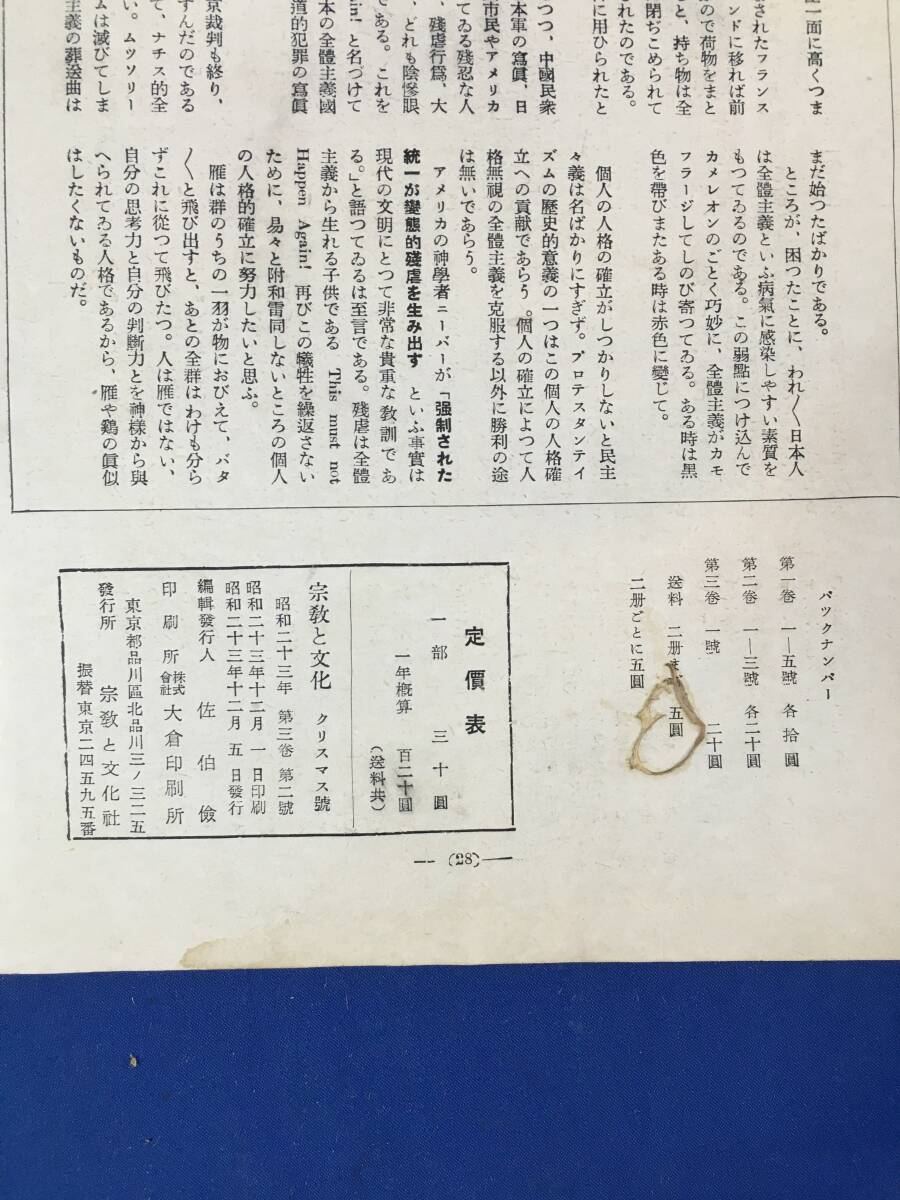 面に高くつま
されたフランス
ンドに移れば前
ので荷物をまと
と、持ち物は全
閉ぢこめられて
に用ひられたと
れたのである。
つつ、中國民衆
本軍の寫眞、日
市民やアメリカ
てゐる残忍な人
、残虐行爲、大
、どれも陰慘眼
である。これを
in! と名づけて
本の全體主義國
道的犯罪の寫眞
京裁判も終り、
すんだのである
て、ナチス的全
い。ムツソリー
ムは滅びてしま
主義の葬送曲は
まだ始つたばかりである。
ところが、困つたことに、われ〱日本人
は全體主義といふ病氣に感染しやすい素質を
もつてゐるのである。この弱點につけ込んで
カメレオンのごとく巧妙に、全體主義がカモ
フラージしてしのび寄つてゐる。ある時は黒
色を帶びまたある時は赤色に變じて。
個人の人格の確立がしつかりしないと民主
々義は名ばかりにすぎず。プロテスタンテイ
ズムの歷史的意義の一つはこの個人の人格確
立への貢献であらう。個人の確立によつて人
格無視の全體主義を克服する以外に勝利の途
は無いであらう。
アメリカの神學者ニーバーが「强制された
統一が變態的殘虐を生み出す といふ事實は
現代の文明にとつて非常な貴重な敎訓であ
る。」と語つてゐるは至言である。殘虐は全體
主義から生れる子供である This must not
Happen Again! 再びこの犠牲を繰返さない
ために、易々と附和雷同しないところの個人
の人格的確立に努力したいと思ふ。
雁は群のうちの一羽が物におびえて、バタ
〱と飛び出すと、あとの全群はわけも分ら
ずこれに從つて飛びたつ。人は雁ではない、
自分の思考力と自分の判斷力とを神様から與
へられてゐる人格であるから、雁や鷄の眞似
はしたくないものだ。
バツクナンバー
第一卷 一―五號 各拾圓
第二卷 一―三號 各二十圓
第三卷 一號 二十圓
送料 二册まで 五圓
二册ごとに五圓
定價表
一部 三十圓
一年概算 百二十圓
(送料共)
宗敎と文化 クリスマス號
昭和二十三年 第三卷 第二號
昭和二十三年十二月 一日印刷
昭和二十三年十二月 五日發行
編輯發行人 佐伯儉
印刷所 株式會社 大倉印刷所
東京都品川區北品川三ノ三二五
發行所 宗敎と文化社
振替東京二四五九五番
― (28) ―